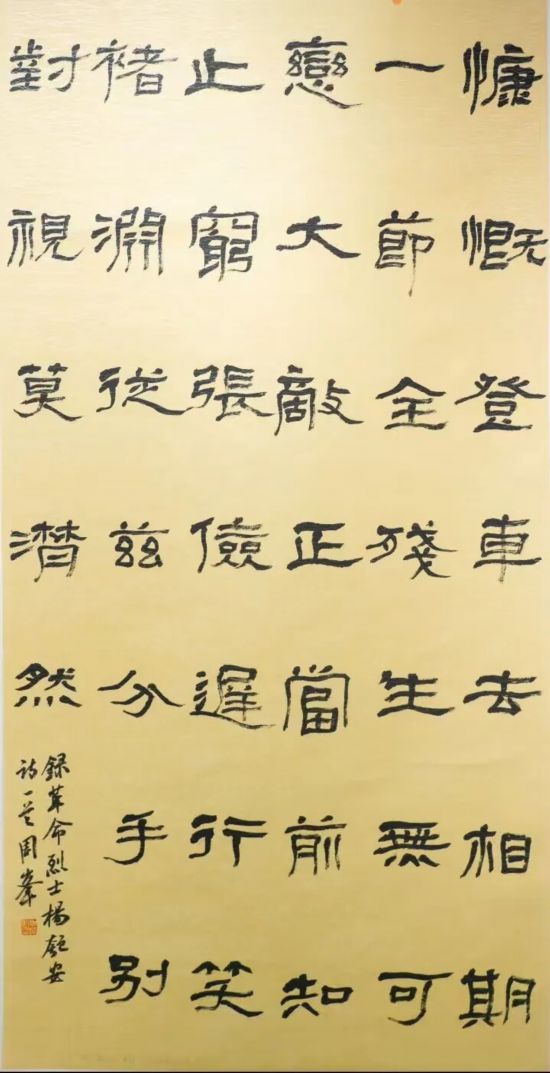 慷慨登車去相期
一節全殘生無可
戀大敵正當前知
止窮張儉遲行笑
褚淵從茲分手別
對視莫潸然
録革命烈士楊匏安
詩一首周峯